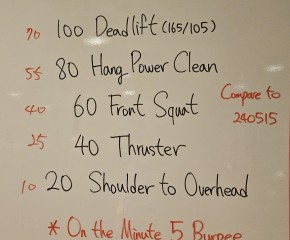 70 100 Deadlift (165/105)
55 80 Hang Power Clean
40 60 Front Squat
Compare to
240515
25 40 Thruster
10 20 Shoulder to Overhead
* On the Minute 5 Burpee